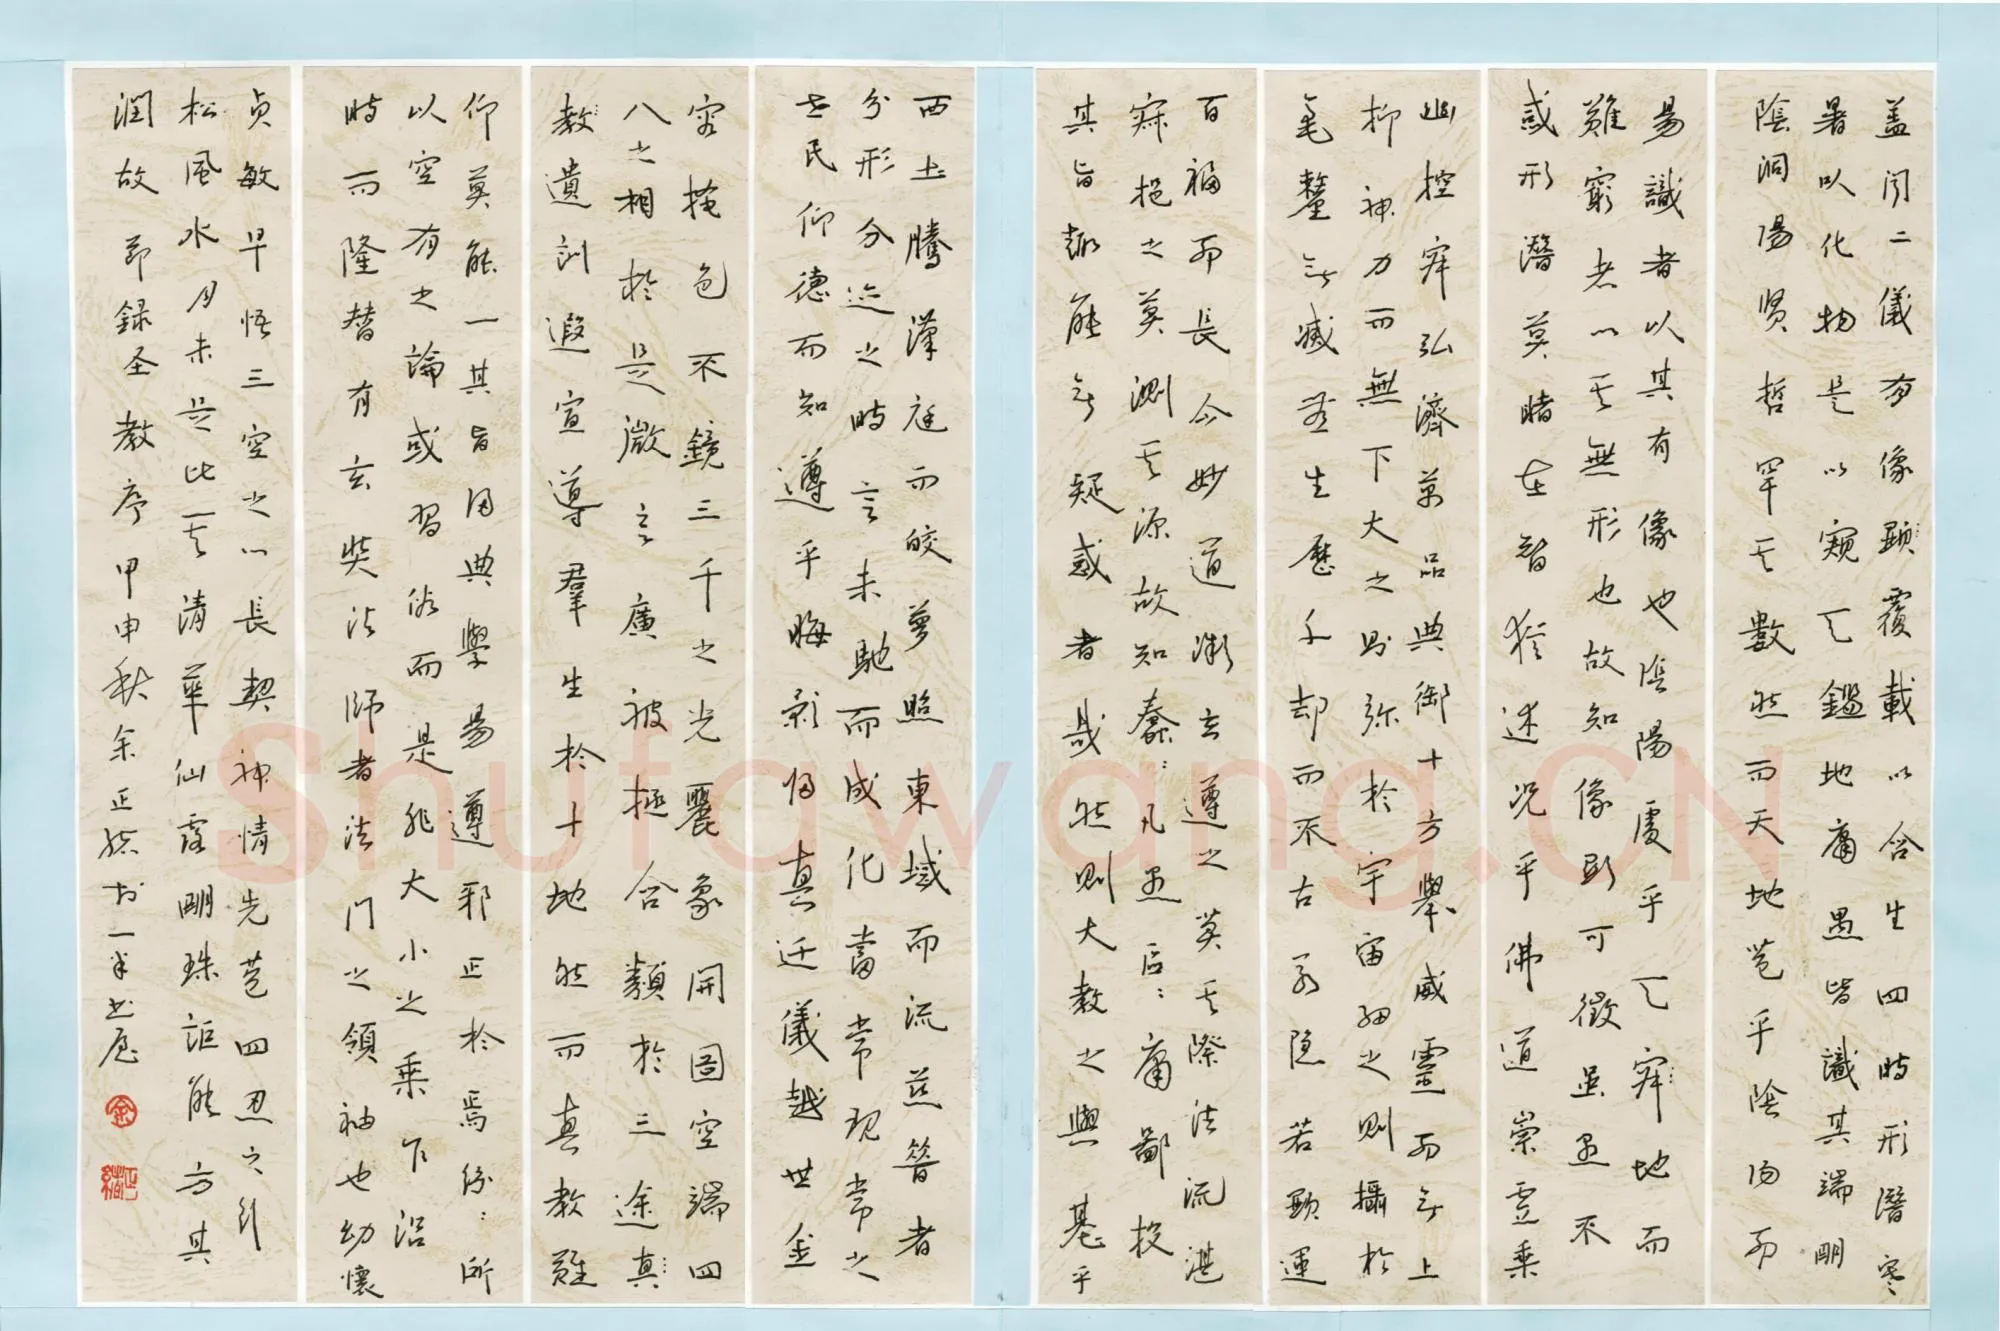 盖闻二儀有像顯覆載以含生四時形潛寒
暑以化物是以窺天鑑地庸愚皆識其端明
陰洞陽贤哲罕其數然而天地苞乎陰陽而
易識者以其有像也陰陽處乎天地而
難窮者以其無形也故知像彰可徵雖愚不
惑形潛莫睹在智猶迷況乎佛道崇虛乘
幽控寂弘濟萬品典御十方舉威靈而無上
抑神力而無下大之則弥於宇宙細之則攝於
毫釐無滅無生歷千却而不古若隐若顯運
百福而長今妙道凝玄遵之莫其際法流湛
寂挹之莫測其源故知蠢:凡愚區:庸鄙投
其旨趣能無疑惑者哉然則大教之興基乎
西土騰漢庭而皎夢照東域而流慈昔者
分形分迹之時言未馳而成化當常現常之
世民仰德而知遵乎晦影归真迁儀越世金
容掩色不鏡三千之光麗象開图空端四
八之相於是微言廣被拯含類於三途真
教遺訓遐宣導羣生於十地然而真教難
仰莫能一其旨因典學易遵邪正於焉紛:所
以空有之論或習俗而是非大小之乘乍沿
時而隆替有玄奘法師者法門之領袖也幼懷
贞敏早悟三空之心長契神情先苞四忍之行
松風水月未足比其清華仙露明珠詎能方其
潤故 节錄圣教序甲申秋余正𦀇书一半书屋
Shufawang.CN